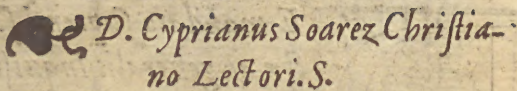 D. Cyprianus Soarez Chriſtia-
no Lectori. S.